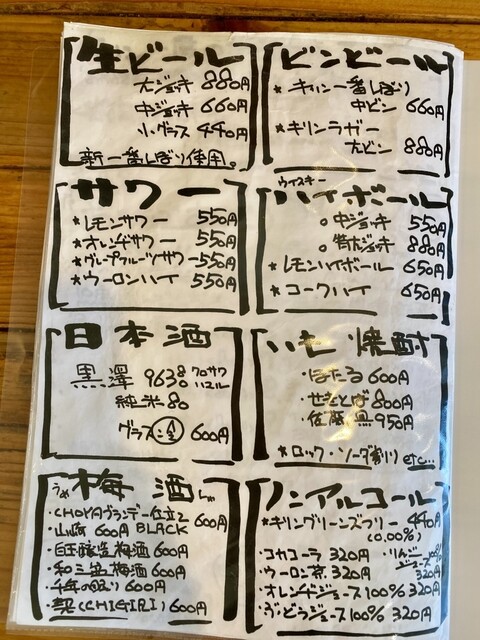 生ビール
大ジョッキ 880円
中ジョッキ 660円
小グラス 440円
新一番しぼり使用。
ビンビール
★キリン一番しぼり
中ビン 660円
★キリンラガー
大ビン 880円
サワー
★レモンサワー 550円
★オレンヂサワー 550円
★グレープフルーツサワー 550円
★ウーロンハイ 550円
ウィスキー
ハイボール
○中ジョッキ 550円
○ジョッキ 880円
★レモンハイボール 650円
★コークハイ 650円
日本酒
黒澤
純米80
グラス 600円
いも焼酎
・ほたる 600円
800円
・佐藤 黒 950円
★ロック・ソーダ割り etc...
うめ 梅酒 しゅ
・CHOYAブランデー仕立て 600円
・山崎 600円 BLACK
梅酒 600円
・和三盆梅酒 600円
・千年の眠り 600円
・契(CHIGIRI) 600円
ノンアルコール
★キリングリーンズフリー 440円
(0.00%)
・コカコーラ 320円
・りんごジュース 100% 320円
・ウーロン茶 320円
・オレンヂジュース 100% 320円
・ぶどうジュース 100% 320円